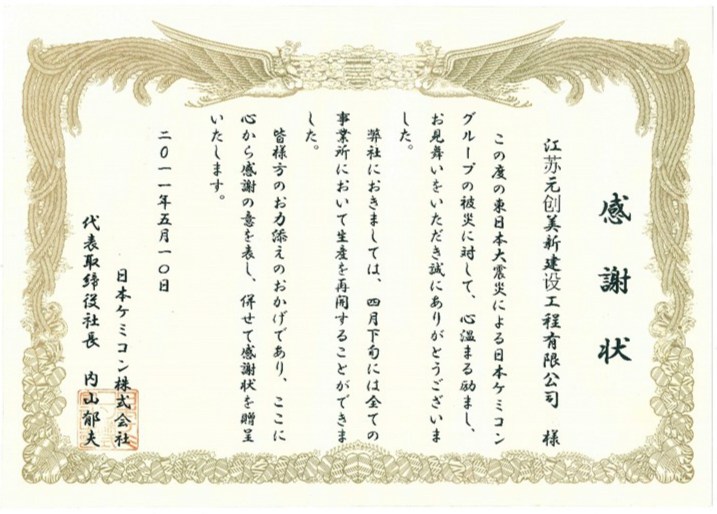 感謝状
江苏元创美新建设工程有限公司 様
この度の東日本大震災による日本ケミコン
グループの被災に対して、心温まる励まし、
お見舞いをいただき誠にありがとうございま
した。
弊社におきましては、四月下旬には全ての
事業所において生産を再開することができま
した。
皆様方のお力添えのおかげであり、ここに
心から感謝の意を表し、併せて感謝状を贈呈
いたします。
二〇一一年五月一〇日
日本ケミコン株式会社
代表取締役社長 内山郁夫